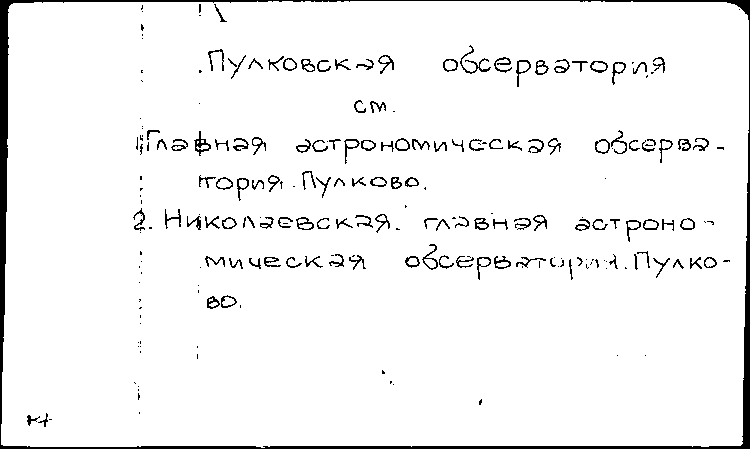 Пулковская обсерватория
см.
1. Главная астрономическая обсерва-
тория. Пулково.
2. Николаевская главная астроно-
мическая обсерватория. Пулко-
во.